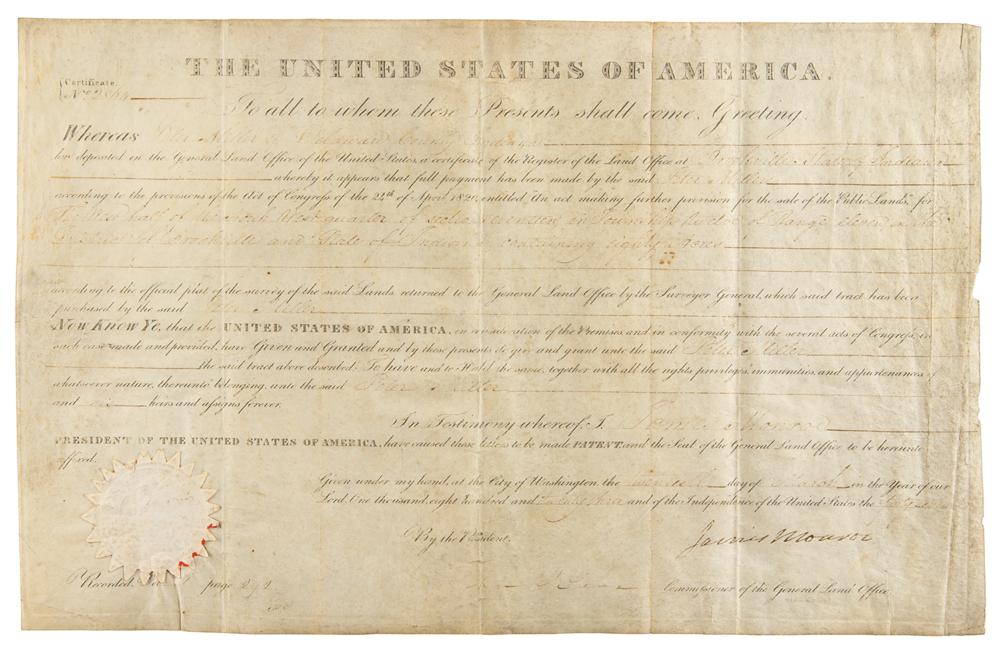 THE UNITED STATES OF AMERICA.
Certificate.
No. 2864
To all to whom these Presents shall come, Greeting.
Whereas Peter Miller of Delaware County Indiana
has deposited in the General Land Office of the United States, a certificate of the Register of the Land Office at Brookville State of Indiana
whereby it appears that full payment has been made by the said Peter Miller
according to the provisions of the Act of Congress of the 24th of April 1820, entitled An act making further provision for the sale of the Public Lands, for
The West half of the North West quarter of section seventeen in Township twelve of Range eleven in the
District of Brookville and State of Indiana containing Eighty Acres
according to the official plat of the survey of the said Lands, returned to the General Land Office by the Surveyor General, which said tract has been
purchased by the said Peter Miller
Now Know Ye, that the UNITED STATES OF AMERICA, in consideration of the Premises, and in conformity with the several acts of Congress, in
such case made and provided, have Given and Granted and by these presents do give and grant unto the said Peter Miller
the said tract above described: To have and to Hold the same, together with all the rights, privileges, immunities, and appurtenances of
whatsoever nature, thereunto belonging, unto the said Peter Miller
and his heirs and assigns forever.
In Testimony whereof, I, James Monroe
PRESIDENT OF THE UNITED STATES OF AMERICA, have caused these letters to be made PATENT, and the Seal of the General Land Office to be hereunto
affixed.
Given under my hand, at the City of Washington, the day of March in the Year of our
Lord, One thousand, eight hundred and and of the Independence of the United States the
By the President.
James Monroe
Recorded, page 292
Commissioner of the General Land Office